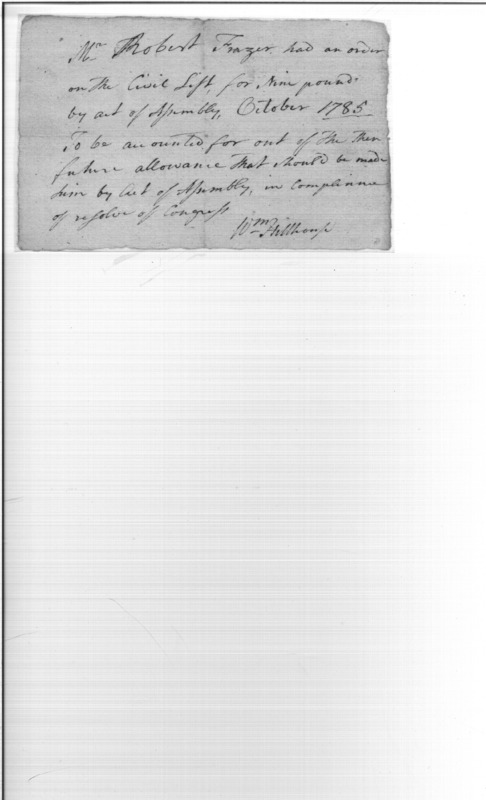 Mr Robert Frazer had an order
on the Civil List for Nine pounds
by act of Assembly, October 1785
To be accounted for out of the then
future allowance that should be made
him by Act of Assembly, in compliance
of resolve of Congress
Wm Hillhouse